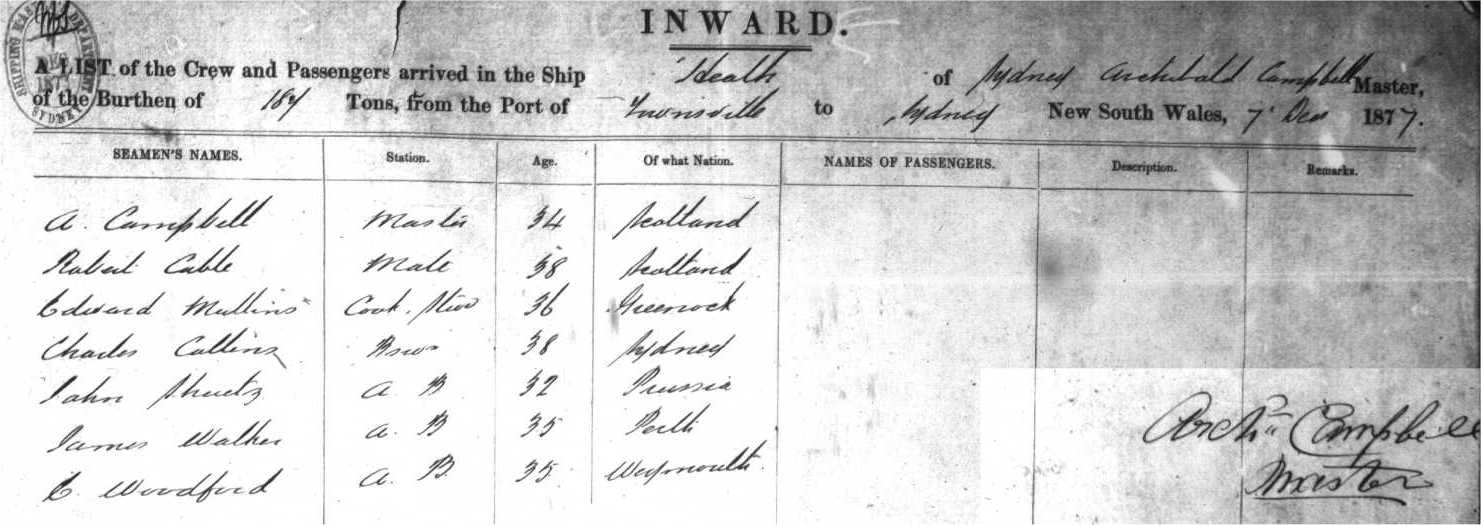 SHIPPING MASTER'S DEPARTMENT SYDNEY
INWARD.
A LIST of the Crew and Passengers arrived in the Ship Heath of Sydney Archibald Campbell Master,
of the Burthen of 187 Tons, from the Port of Townsville to Sydney New South Wales, 7 Dec 1877.
SEAMEN'S NAMES. Station. Age. Of what Nation. NAMES OF PASSENGERS. Description. Remarks.
A. Campbell Master 34 Scotland
Robert Cable Mate 38 Scotland
Edward Mullins Cook. Stew 36 Greenock
Charles Collins 38 Sydney
John Shuetz A B 32 Prussia
James Walker A. B 35 Perth
C. Woodford A. B. 35 Weymouth.
Arch. Campbell
Master